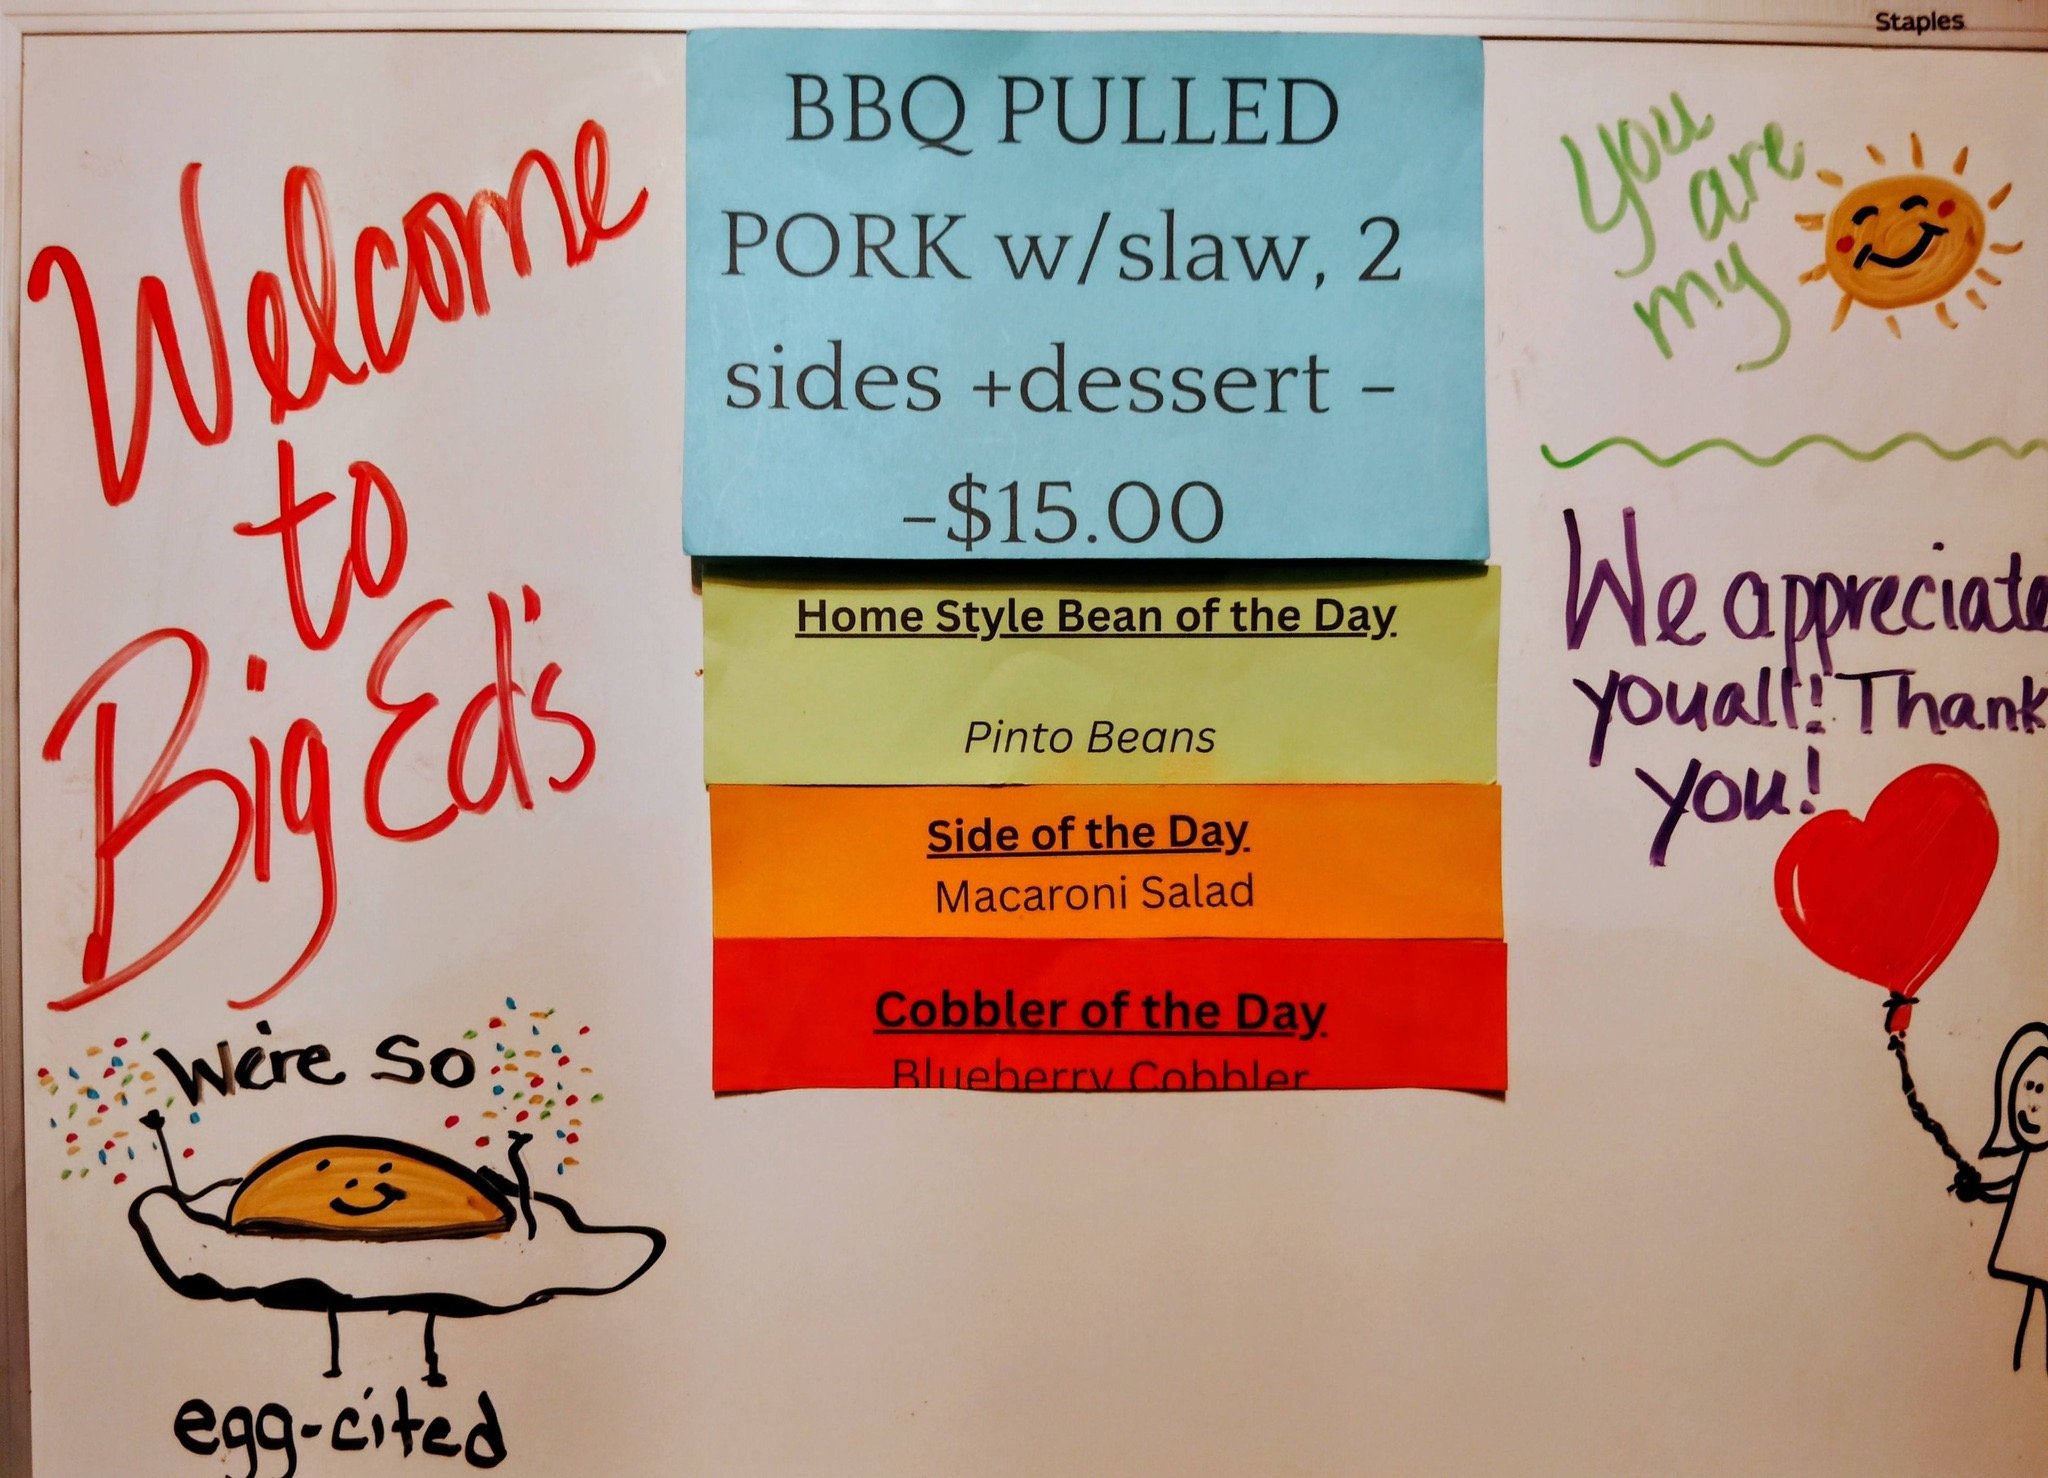 Staples
Welcome
to
Big Ed's
We're so
egg-cited
BBQ PULLED
PORK w/slaw, 2
sides +dessert -
-$15.00
Home Style Bean of the Day
Pinto Beans
Side of the Day
Macaroni Salad
Cobbler of the Day
Blueberry Cobbler
You
are
my
We appreciate
you all! Thank
you!